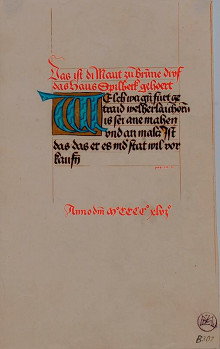 Das ist di Maut zu brünne dʒoſ
das haus Spilberk gehoert
Welch wagn fürt ge
traid welherlai korn
is sei ane mahen
vnd an malcz ist
das das er es in d stat wil vor
kaufn
Anno dm Mº CCCCº xlvjº